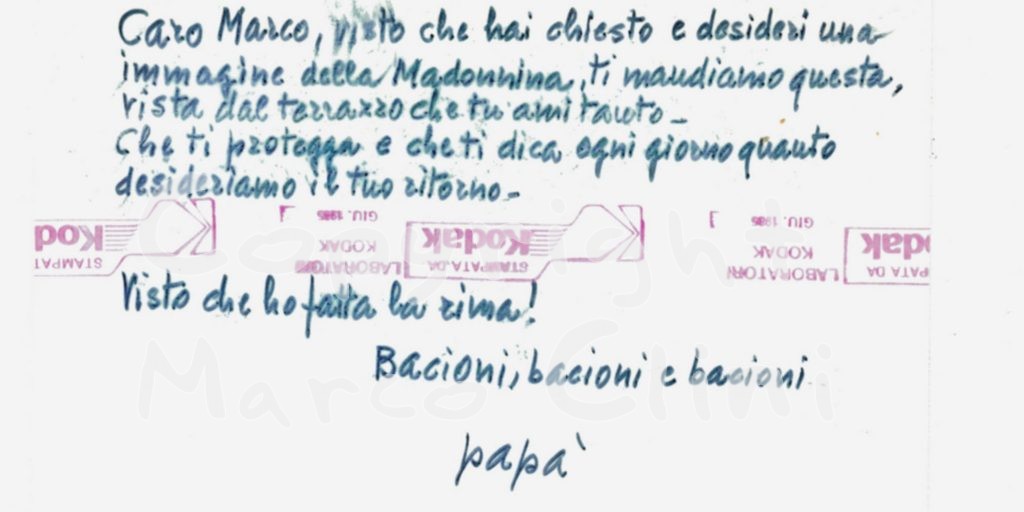 Caro Marco, visto che hai chiesto e desideri una
immagine della Madonnina, ti mandiamo questa,
vista dal terrazzo che tu ami tanto-
Che ti protegga e che ti dica ogni giorno quanto
desideriamo il tuo ritorno-
GIU. 1985 GIU. 1985
STAMPAT Kod LABORATORI KODAK STAMPATA DA Kodak LABORATORI KODAK PATA DA odak
Visto che ho fatta la rima!
Bacioni, bacioni e bacioni
papà
Copyright
Marco Clini